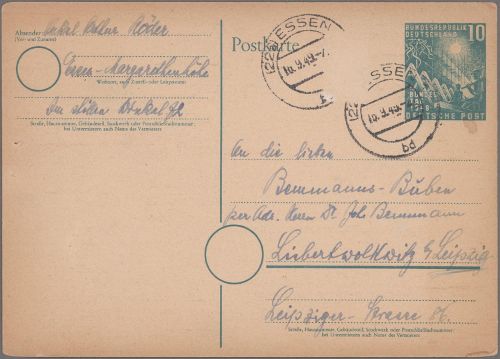 Absender:
(Vor- und Zuname)
Onkel Arthur Röder
Essen-Margarethenhöhe
Wohnort, auch Zustell- oder Leitpostamt
Im stillen Winkel 42
Straße, Hausnummer, Gebäudeteil, Stockwerk oder Postschließfachnummer;
bei Untermietern auch Name des Vermieters
Postkarte
(22) ESSEN
16.9.49.-7
(22) ESSEN
16.9.49
pq
BUNDESREPUBLIK
DEUTSCHLAND
10
DEUTSCHE POST
An die lieben
Bemmanns-Buben
per Adr. Herrn Dr. Joh. Bemmann
Liebertwolkwitz b/Leipzig
Leipziger-Strasse 86.
Straße, Hausnummer, Gebäudeteil, Stockwerk oder Postschließfachnummer;
bei Untermietern auch Name des Vermieters